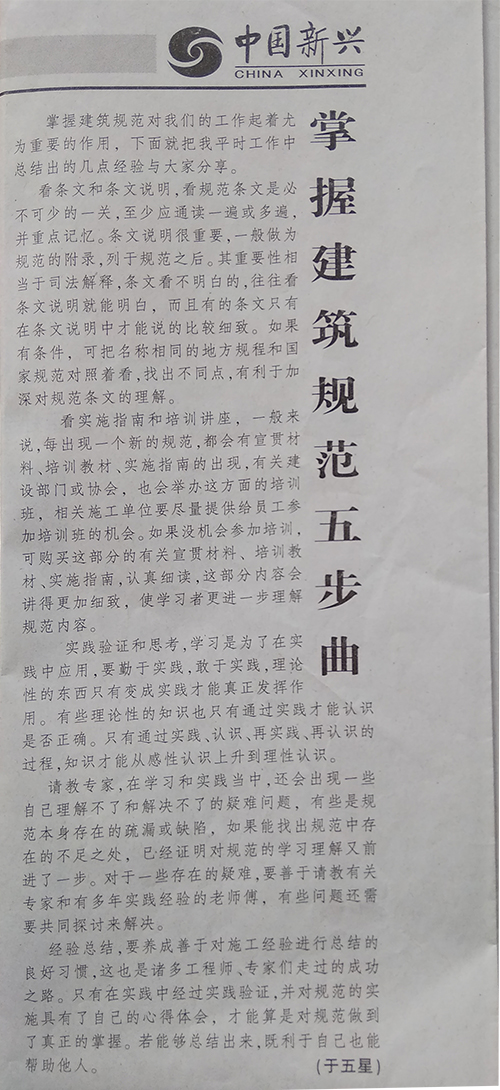 中国新兴
CHINA XINXING
掌握建筑规范五步曲
掌握建筑规范对我们的工作起着尤
为重要的作用，下面就把我平时工作中
总结出的几点经验与大家分享。
看条文和条文说明，看规范条文是必
不可少的一关，至少应通读一遍或多遍，
并重点记忆。条文说明很重要，一般做为
规范的附录，列于规范之后。其重要性相
当于司法解释，条文看不明白的，往往看
条文说明就能明白，而且有的条文只有
在条文说明中才能说的比较细致。如果
有条件，可把名称相同的地方规程和国
家规范对照着看，找出不同点，有利于加
深对规范条文的理解。
看实施指南和培训讲座，一般来
说，每出现一个新的规范，都会有宣贯材
料、培训教材、实施指南的出现，有关建
设部门或协会，也会举办这方面的培训
班，相关施工单位要尽量提供给员工参
加培训班的机会。如果没机会参加培训，
可购买这部分的有关宣贯材料、培训教
材、实施指南，认真细读，这部分内容会
讲得更加细致，使学习者更进一步理解
规范内容。
实践验证和思考，学习是为了在实
践中应用，要勤于实践，敢于实践，理论
性的东西只有变成实践才能真正发挥作
用。有些理论性的知识也只有通过实践才能认识
是否正确。只有通过实践、认识、再实践、再认识的
过程，知识才能从感性认识上升到理性认识。
请教专家，在学习和实践当中，还会出现一些
自己理解不了和解决不了的疑难问题，有些是规
范本身存在的疏漏或缺陷，如果能找出规范中存
在的不足之处，已经证明对规范的学习理解又前
进了一步。对于一些存在的疑难，要善于请教有关
专家和有多年实践经验的老师傅，有些问题还需
要共同探讨来解决。
经验总结，要养成善于对施工经验进行总结的
良好习惯，这也是诸多工程师、专家们走过的成功
之路。只有在实践中经过实践验证，并对规范的实
施具有了自己的心得体会，才能算是对规范做到
了真正的掌握。若能够总结出来，既利于自己也能
帮助他人。
(于五星)